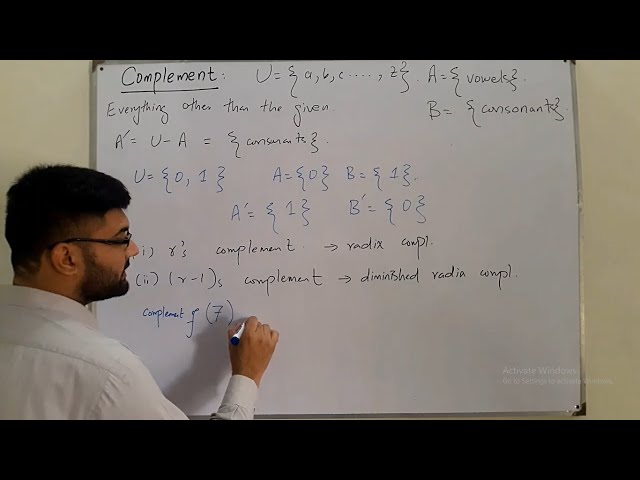 Complement: U = {a, b, c ...., z}. A = {vowels}.
Everything other than the given. B = {consonants}.
A' = U - A = {consonants}.
U = {0, 1} A = {0} B = {1}.
A' = {1} B' = {0}
i) r's complement. → radix compl.
(ii) (r-1)s complement → diminished radix compl.
complement of (7)
Activate Windows
Go to Settings to activate Windows.